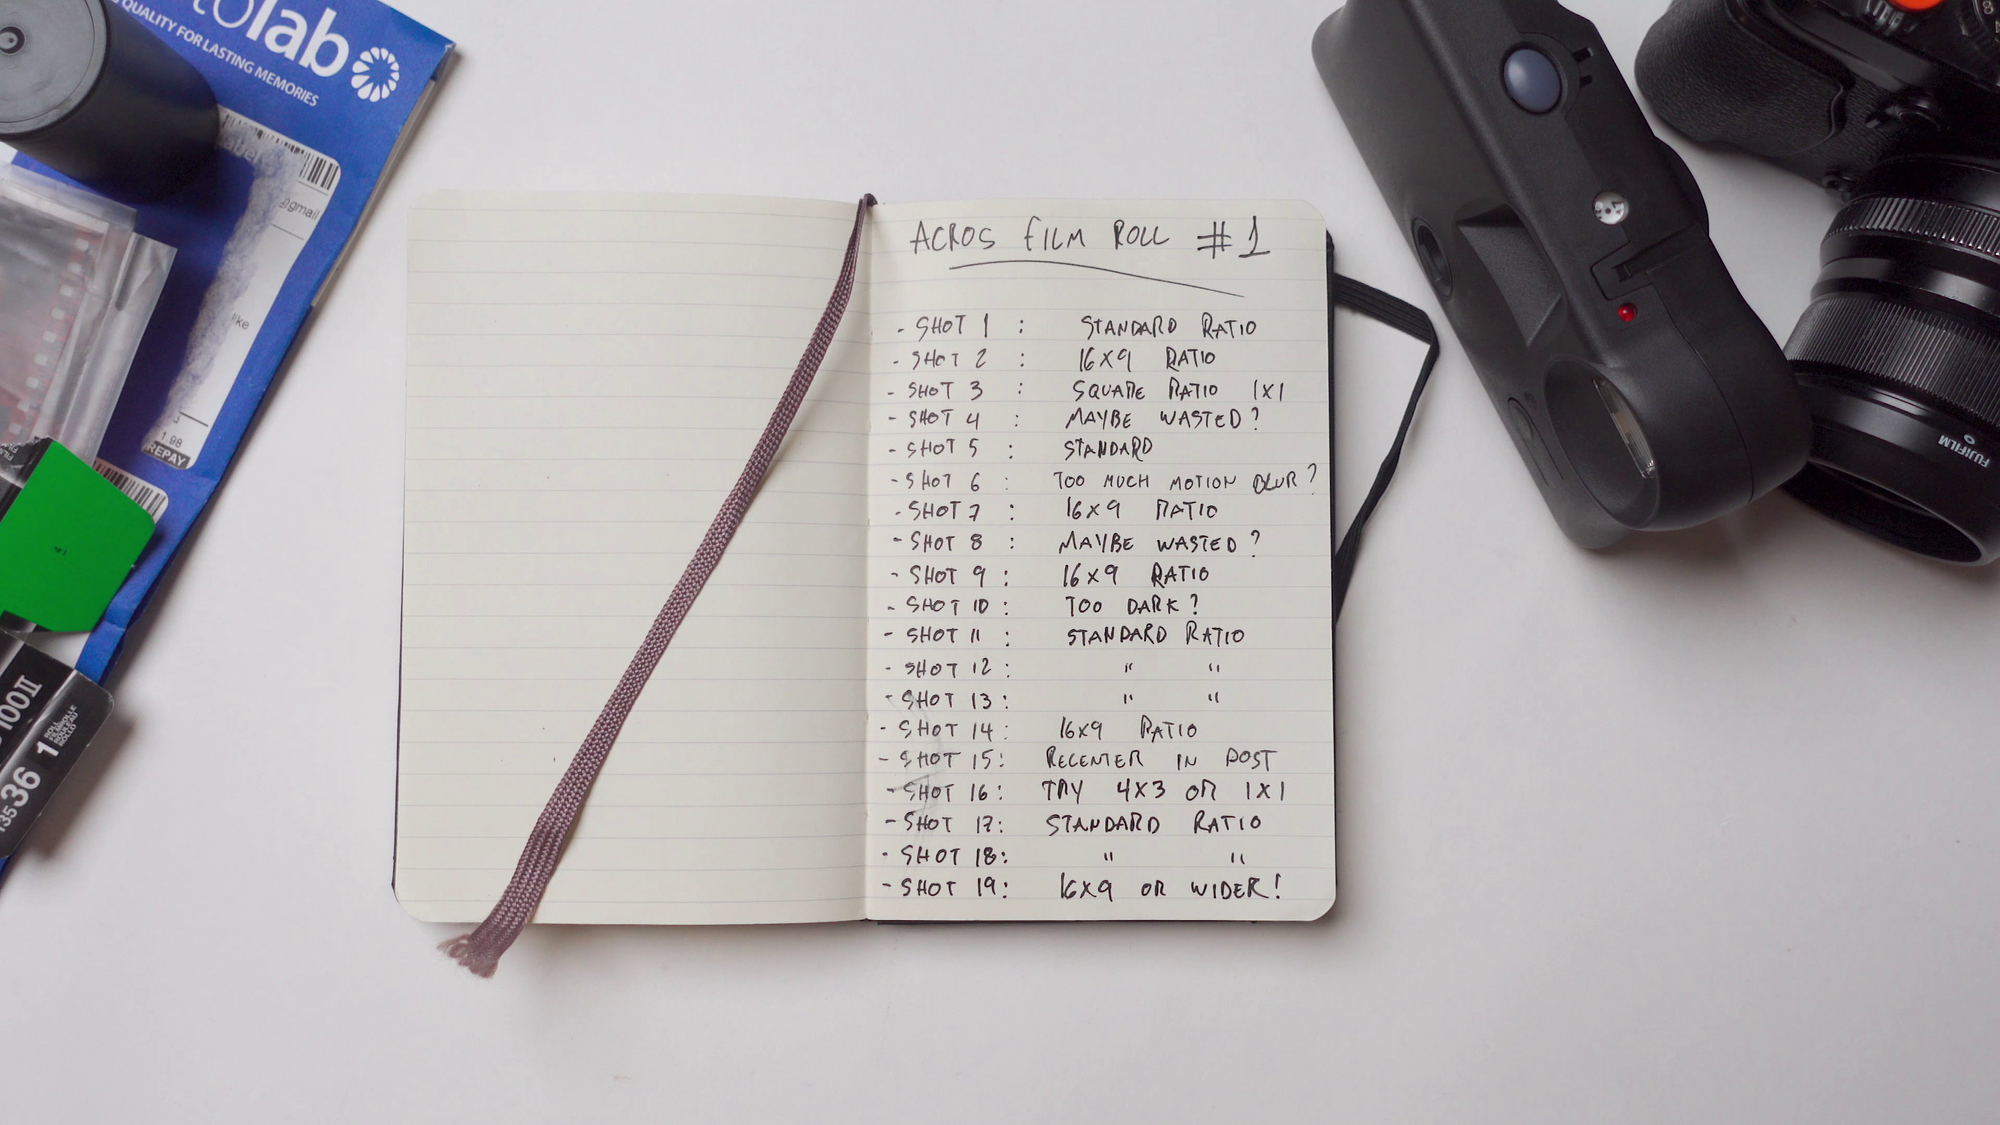 tolab
QUALITY FOR LASTING MEMORIES
@gmail
ike
1.98
REPAY
100II
1
135 36
ACROS FILM ROLL #1
- SHOT 1 : STANDARD RATIO
- SHOT 2 : 16X9 RATIO
- SHOT 3 : SQUARE RATIO 1X1
- SHOT 4 : MAYBE WASTED?
- SHOT 5 : STANDARD
- SHOT 6 : TOO MUCH MOTION BLUR?
- SHOT 7 : 16X9 RATIO
- SHOT 8 : MAYBE WASTED?
- SHOT 9 : 16X9 RATIO
- SHOT 10 : TOO DARK?
- SHOT 11 : STANDARD RATIO
- SHOT 12 : " "
- SHOT 13 : " "
- SHOT 14 : 16X9 RATIO
- SHOT 15 : RECENTER IN POST
- SHOT 16 : TRY 4X3 OR 1X1
- SHOT 17 : STANDARD RATIO
- SHOT 18 : " "
- SHOT 19 : 16X9 OR WIDER!
FUJIFILM